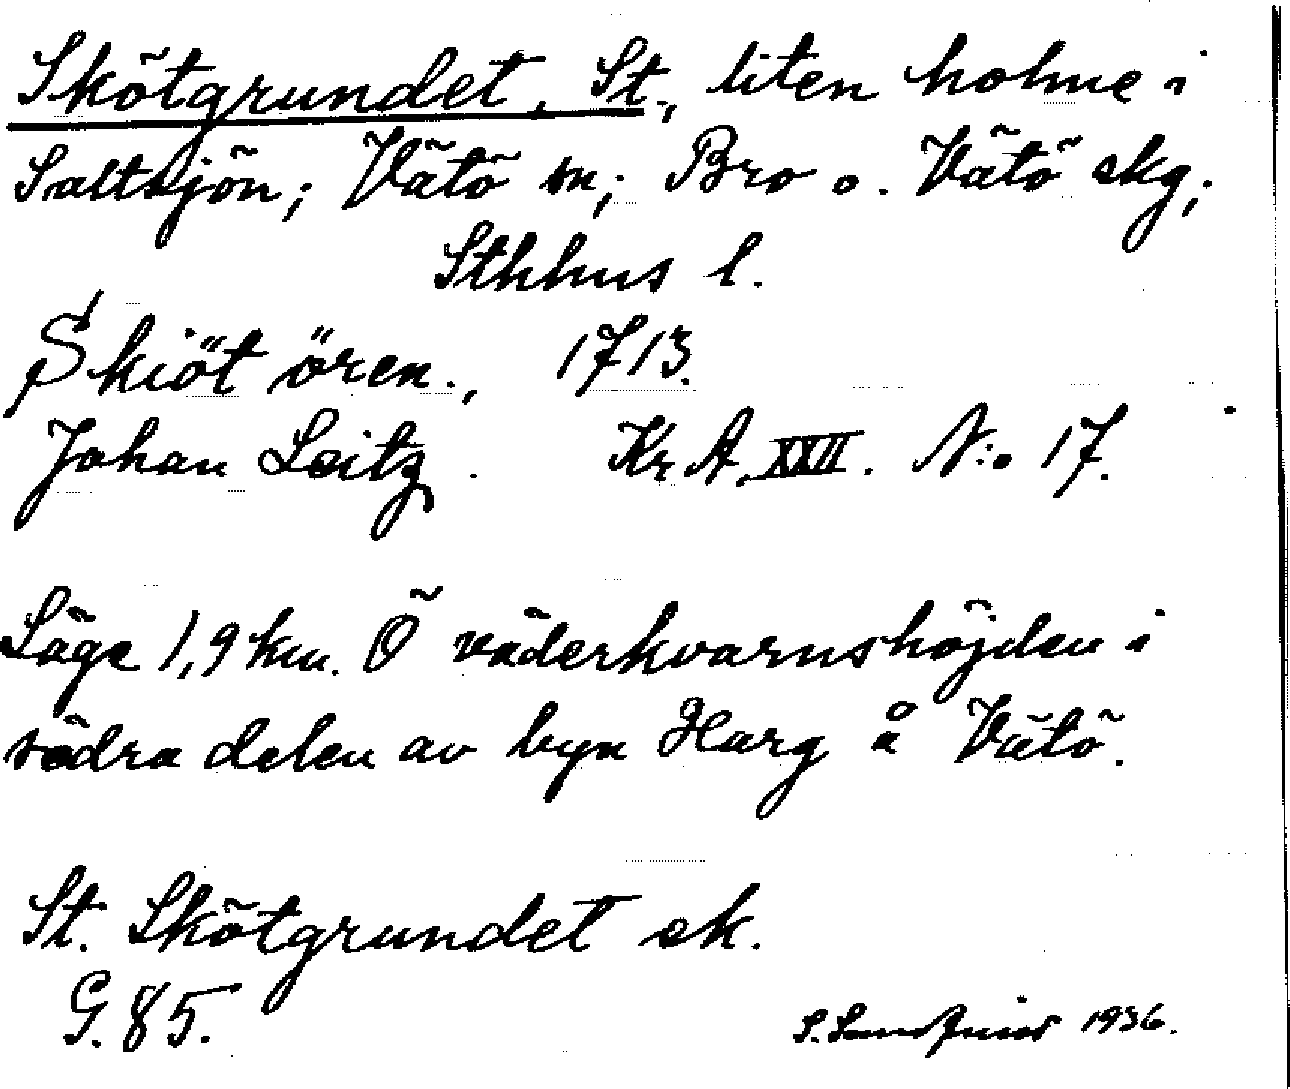 Skötgrundet, St., liten holme i
Saltsjön; Vätö sn; Bro o. Vätö skg;
Sthlms l.
Skiöt ören., 1713.
Johan Leitz. Kr. A. XXII. N:o 17.
Läge 1,9 km. Ö väderkvarnshöjden i
södra delen av byn Harg å Vätö.
St. Skötgrundet ek.
G. 85.
S. 1936.